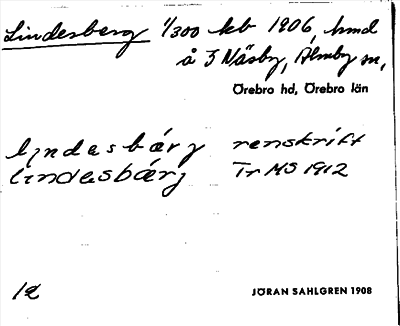 Lindesberg 1/300 kb 1906, hmd
å 3 Näsby, Almby sn,
Örebro hd, Örebro län
lındasbárj renskrift
lındasbærj Tr MS 1912
12
JÖRAN SAHLGREN 1908